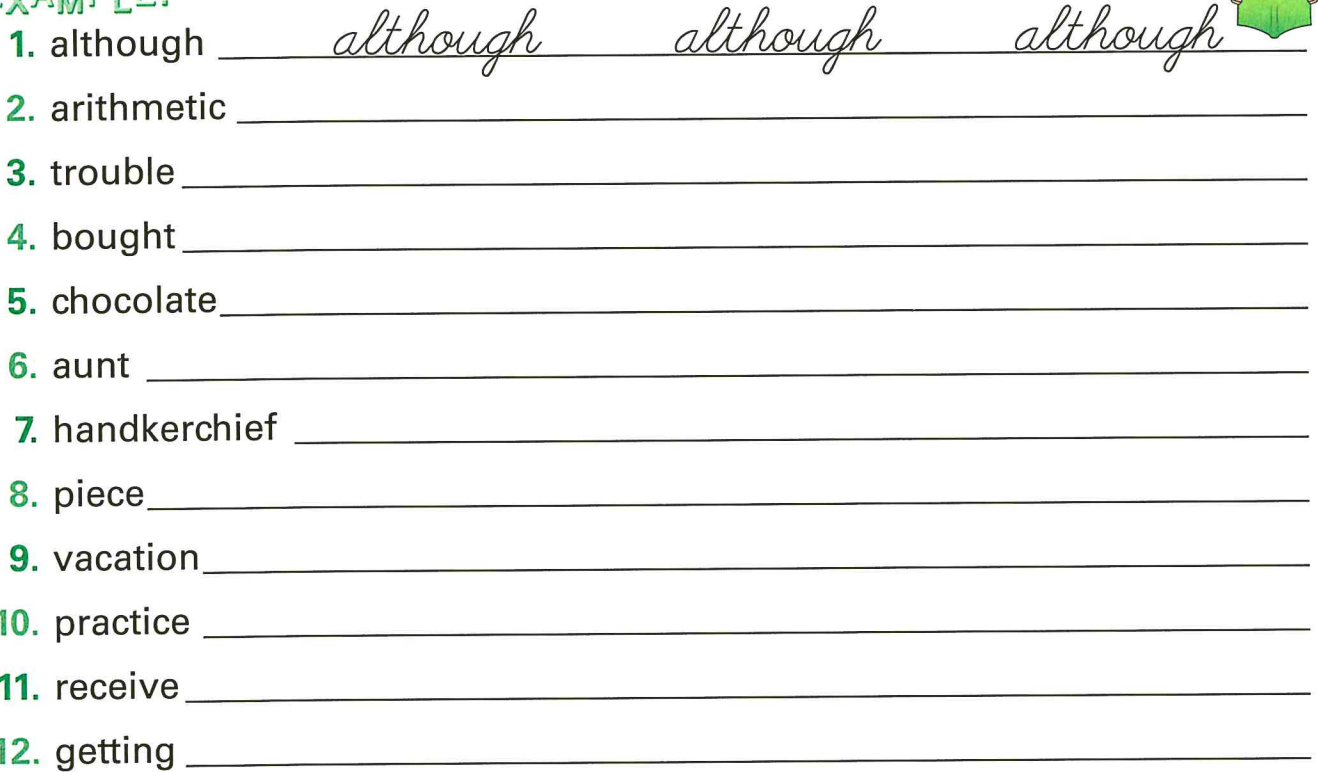 EXAMPLE:
1. although although although although
2. arithmetic
3. trouble
4. bought
5. chocolate
6. aunt
7. handkerchief
8. piece
9. vacation
10. practice
11. receive
12. getting